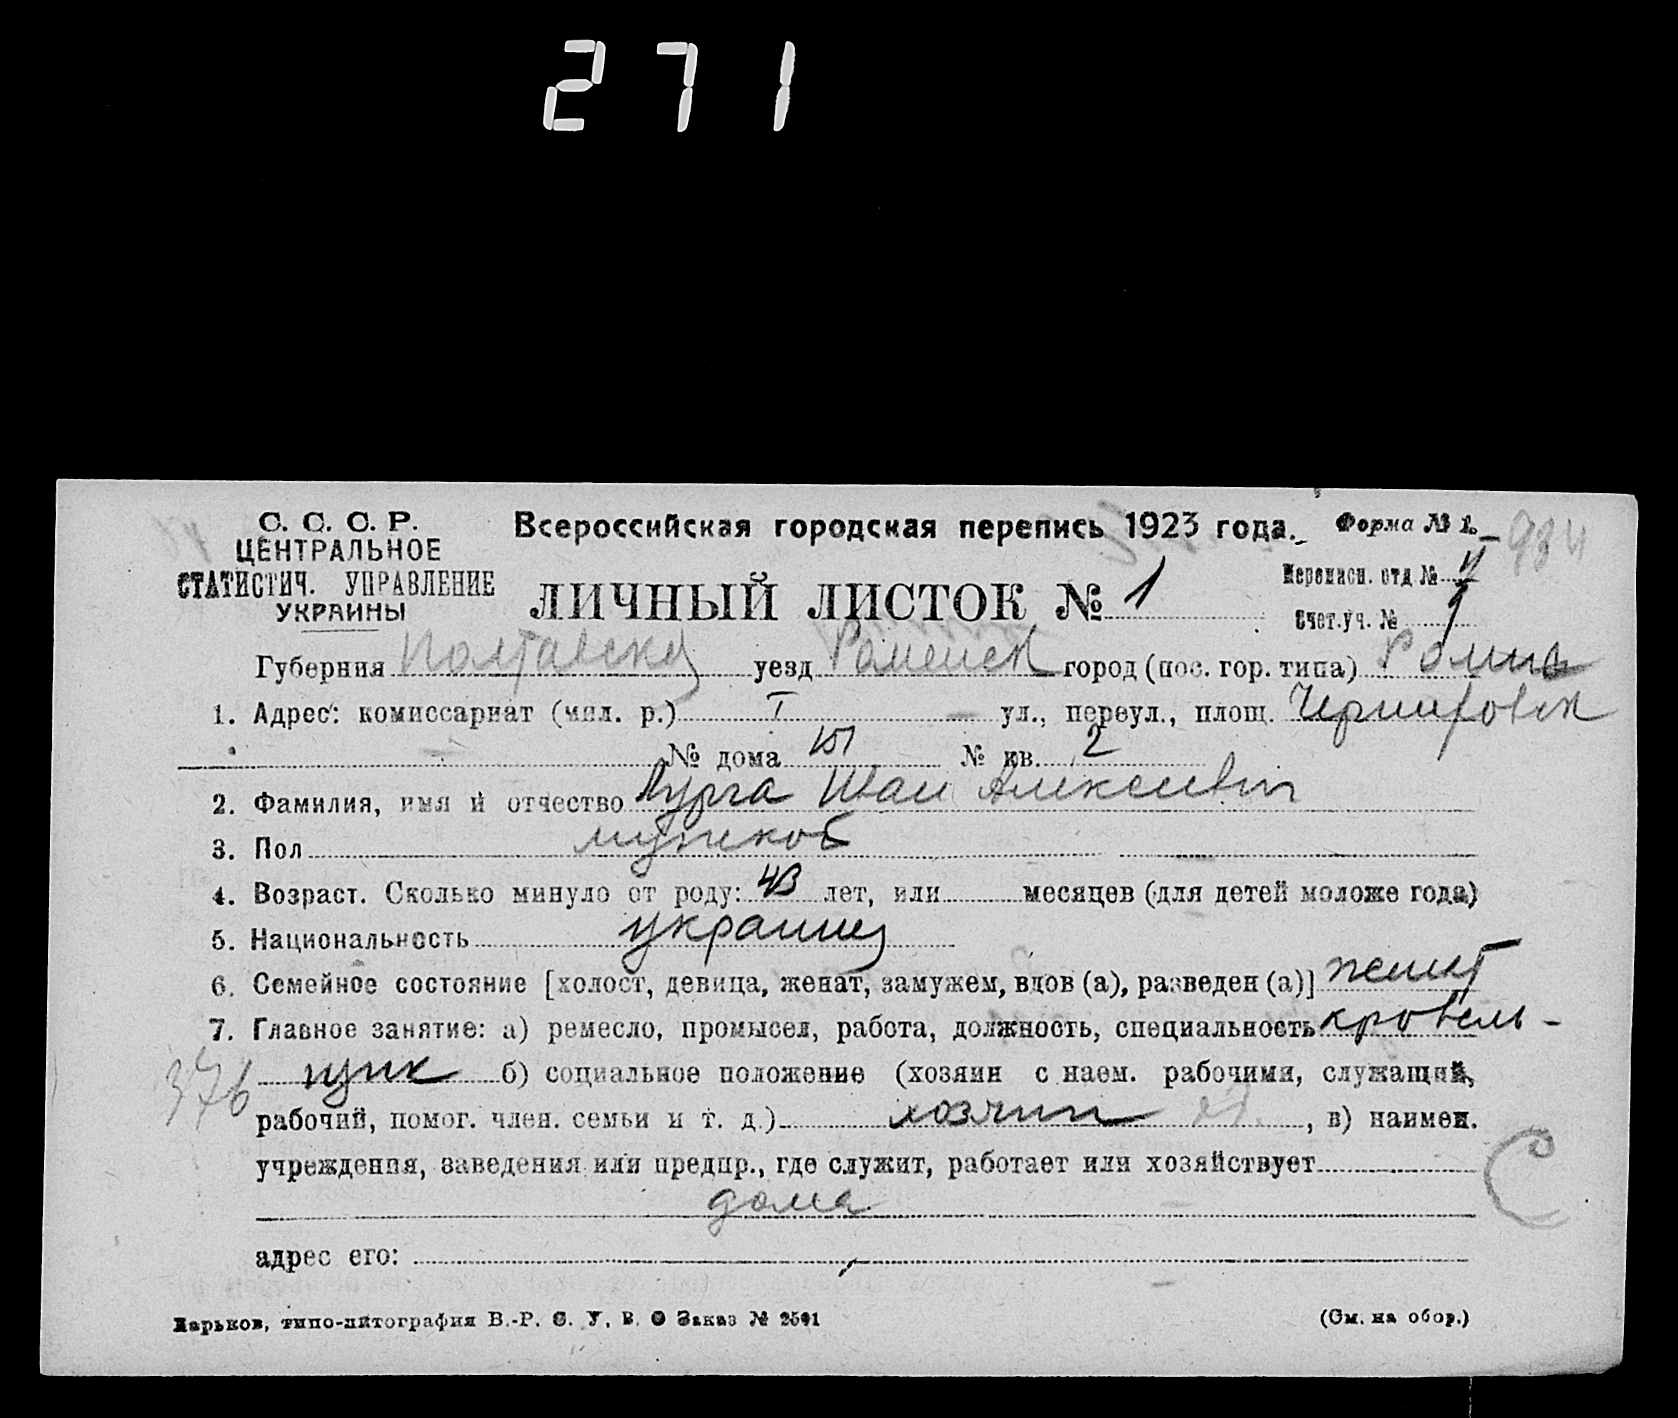 271
С. С. С. Р.
ЦЕНТРАЛЬНОЕ
СТАТИСТИЧ. УПРАВЛЕНИЕ
УКРАИНЫ
Всероссийская городская перепись 1923 года.
Форма № 1.
934
ЛИЧНЫЙ ЛИСТОК № 1
Переписн. отд. №
Счет. уч. №
Губерния Полтавска уезд Роменск город (пос. гор. типа) Ромны
1. Адрес: комиссариат (мил. р.) I ул., переул., площ.
№ дома 151 № кв. 2
2. Фамилия, имя и отчество Иван Алексеевич
3. Пол мужской
4. Возраст. Сколько минуло от роду: 43 лет, или месяцев (для детей моложе года)
5. Национальность украинец
6. Семейное состояние [холост, девица, женат, замужем, вдов (а), разведен (а)] женат
7. Главное занятие: а) ремесло, промысел, работа, должность, специальность кровель-
376 щик б) социальное положение (хозяин с наем. рабочими, служащий,
рабочий, помог. член. семьи и т. д.) хозяин , в) наимен.
учреждения, заведения или предпр., где служит, работает или хозяйствует
С
дома
адрес его:
Харьков, типо-литография В.-Р. С. У. В. О Заказ № 2501
(См. на обор.)